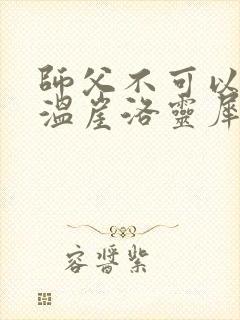 師父不可以
溫崖洛靈犀
容醬紫